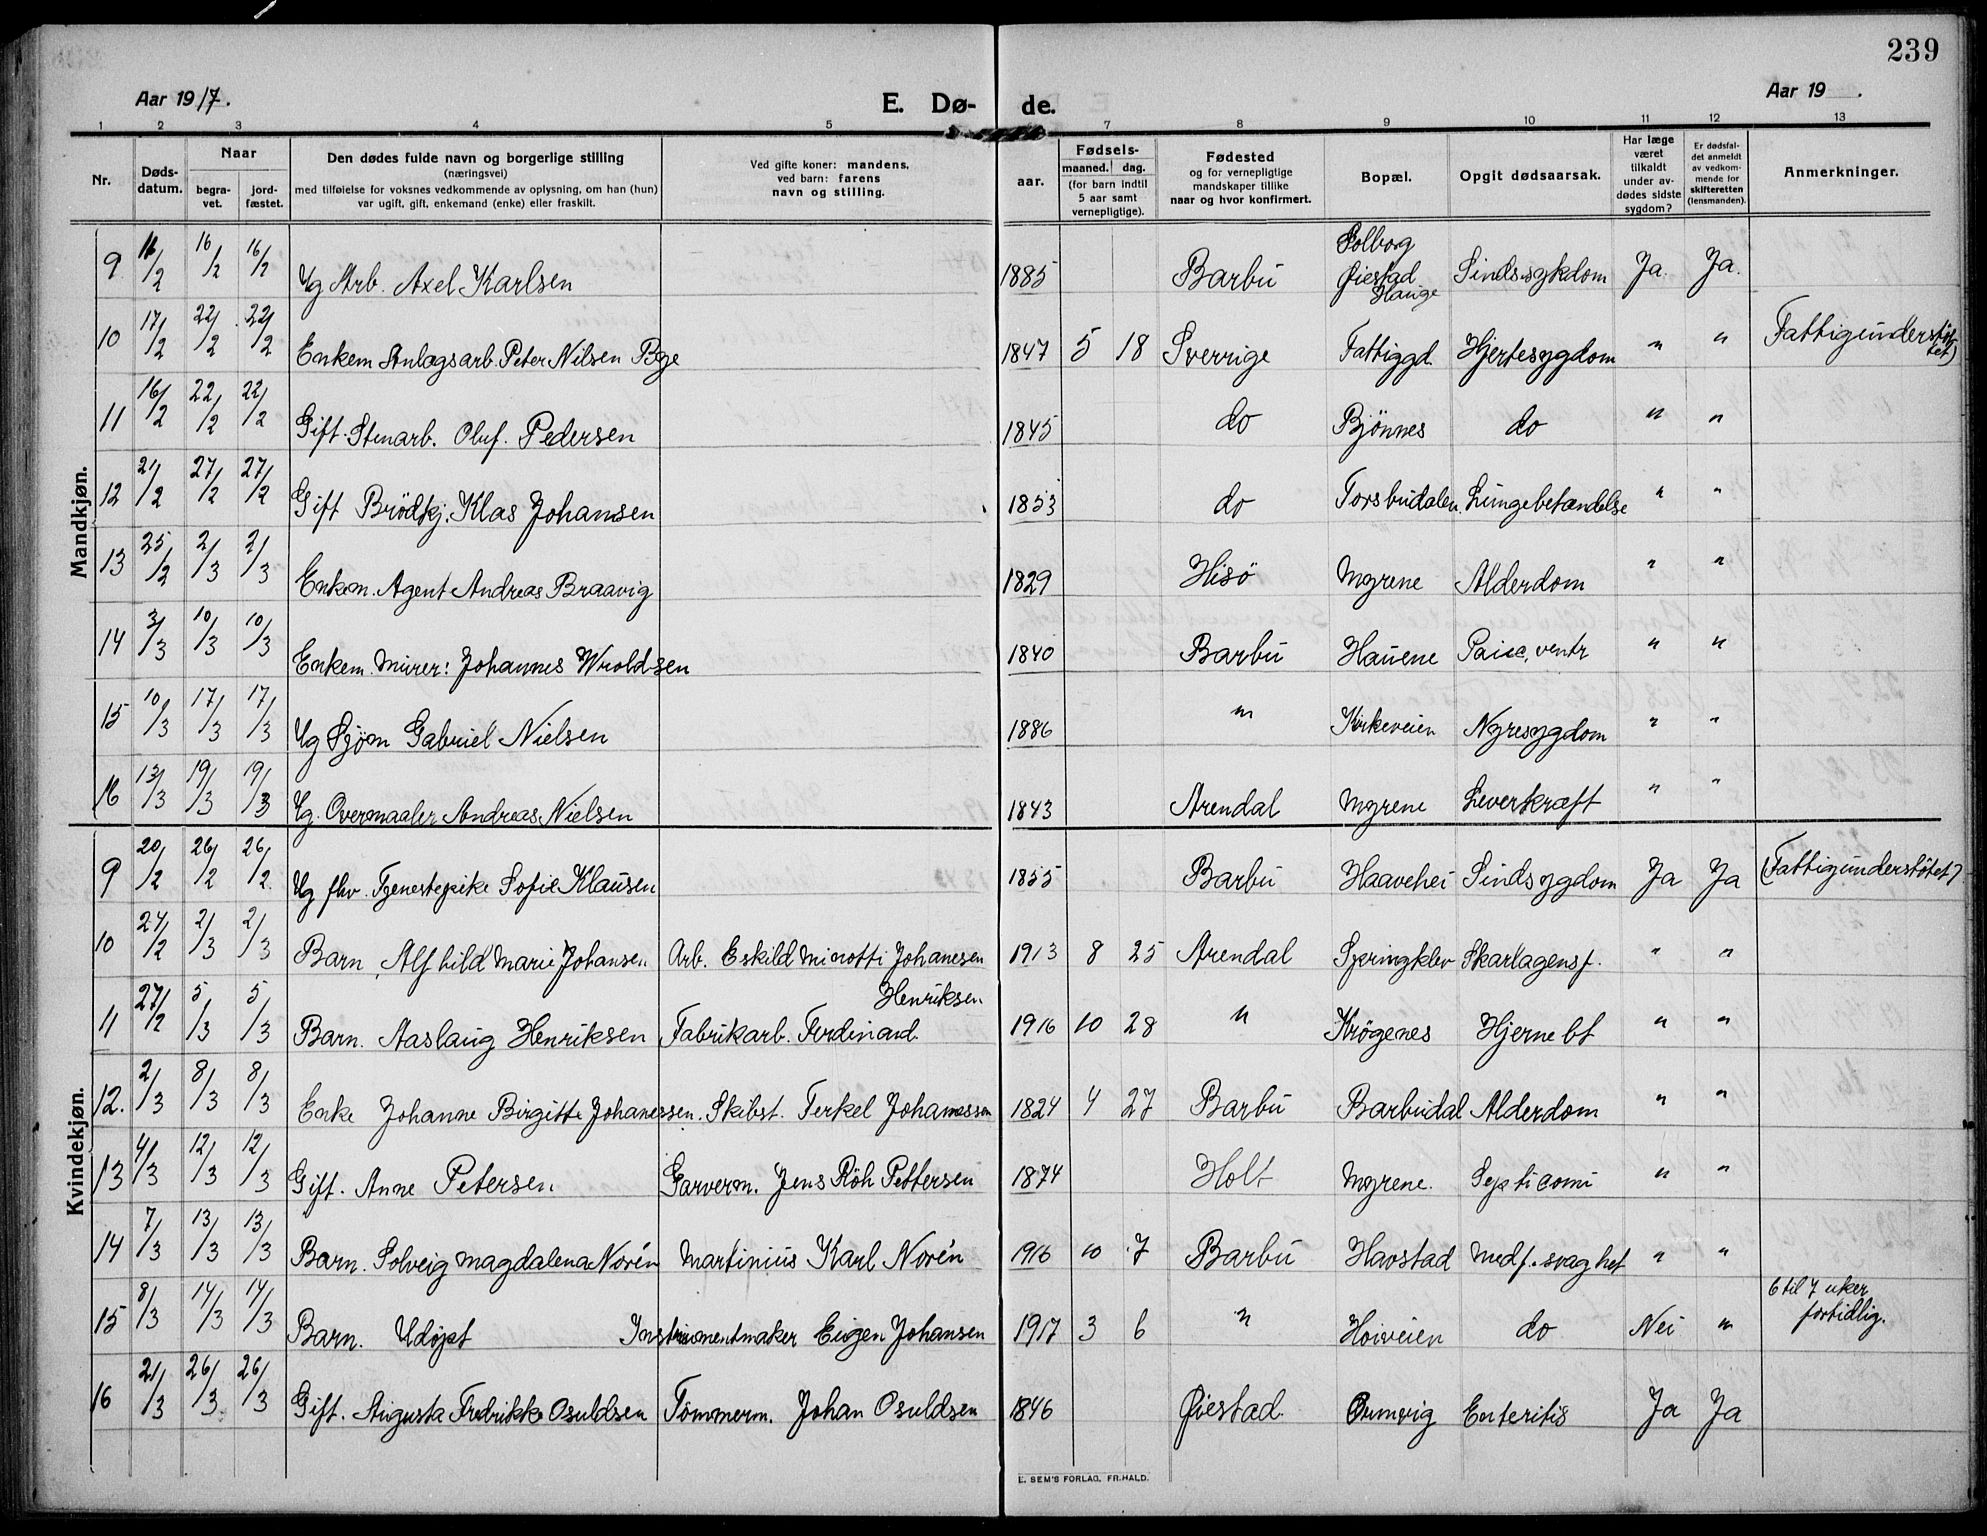 239
Aar 1917.
E. Dø- de.
Aar 19 .
1 2 3 4 5 7 8 9 10 11 12 13
Nr.
Døds-datum.
Naar
begra-vet.
jord-fæstet.
Den dødes fulde navn og borgerlige stilling
(næringsvei)
med tilføielse for voksnes vedkommende av oplysning, om han (hun)
var ugift, gift, enkemand (enke) eller fraskilt.
Ved gifte koner: mandens,
ved barn: farens
navn og stilling.
aar.
Fødsels-
maaned. dag.
(for barn indtil
5 aar samt
vernepligtige).
Fødested
og for vernepligtige
mandskaper tillike
naar og hvor konfirmert.
Bopæl.
Opgit dødsaarsak.
Har læge
været
tilkaldt
under av-
dødes sidste
sygdom?
Er dødsfal-
det anmeldt
av vedkom-
mende for
skifteretten
(lensmanden).
Anmerkninger.
Mandkjøn.
9 16/2 16/2 16/2 Ug Arb. Axel Karlsen 1885 Barbu Solborg Øiestad Hauge Sindssykdom Ja. Ja.
10 17/2 22/2 22/2 Enkem Anlægsarb. Peter Nilsen Bge 1847 5 18 Sverrige Fattiggd. Hjertesygdom " " Fattigunderstøttet)
11 16/2 22/2 22/2 Gift. Stenarb. Oluf. Pedersen 1845 do Bjönnes do " "
12 21/2 27/2 27/2 Gift Brödkj. Klas Johansen 1853 do Torsbudalen. Lungebetændelse " "
13 25/2 2/3 2/3 Enkem. Agent Andreas Braavig 1829 Hisö Myrene Alderdom " "
14 3/3 10/3 10/3 Enkem. Murer: Johannes Wroldsen 1840 Barbu Hauene ventr " "
15 10/3 17/3 17/3 Ug Sjøm Gabriel Nielsen 1886 " Kirkeveien Nyresygdom " "
16 13/3 19/3 19/3 Ug. Overmaaler Andreas Nielsen 1843 Arendal Myrene Leverkræft " "
Kvindekjøn.
9 20/2 26/2 26/2 Ug fhv. Tjenestepike Sofie Klausen 1855 Barbu Haavehei Sindsygdom Ja Ja (Fattigunderstøtet)
10 24/2 2/3 2/3 Barn, Alfhild Marie Johansen Arb. Eskild Minotti Johanesen 1913 8 25 Arendal Springklev Skarlagensf. " "
11 27/2 5/3 5/3 Barn. Aaslaug Henriksen Fabrikarb. Ferdinand Henriksen 1916 10 28 " Krögenes Hjerne bt " "
12. 2/3 8/3 8/3 Enke Johanne Birgitte Johanessen. Skibst. Terkel Johannessen 1824 4 27 Barbu Barbudal Alderdom " "
13 4/3 12/3 12/3 Gift. Anne Petersen Garverm. Jens Röh Pettersen 1874 Holt Myrene. Septicomi " "
14 7/3 13/3 13/3 Barn. Solveig Magdalena Norén Martinius Karl Norén 1916 10 7 Barbu Havstad Medf. svaghet " "
15 8/3 14/3 14/3 Barn. Udöpt Instrumentmaker Eugen Johansen 1917 3 6 " Hoiveien do Nei " 6 til 7 uker fortidlig.
16 21/3 26/3 26/3 Gift. Augusta Fredrikke Osuldsen Tömmerm. Johan Osuldsen 1846 Øiestad. Enteritis Ja Ja
E. SEM'S FORLAG, FR.HALD.